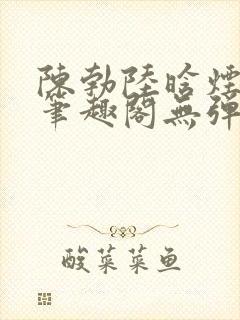 陳勃陸晗煙
筆趣閣無彈
酸菜菜鱼